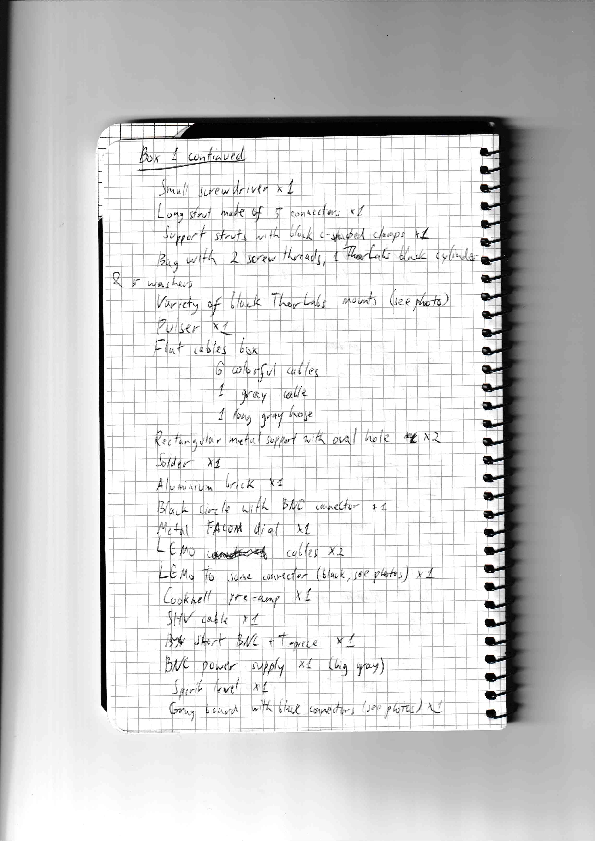 Box 1 continued
Small screwdriver x1
Long strut made of 5 connectors x1
Support struts with black c-shaped clamps x1
Bag with 2 screw threads, 1 ThorLabs black cylinder
& 5 washers
Variety of black ThorLabs mounts (see photo)
Pulser x1
Flat cables box
6 colorful cables
1 gray cable
1 long gray hose
Rectangular metal support with oval hole x2
Solder x1
Aluminium brick x1
Black circle with BNC connector x1
Metal FACOM dial x1
LEMO cables x2
LEMO to some connector (black, see photos) x1
pre-amp x1
SHV cable x1
short BNC + T-piece x1
BNC power supply x1 (big gray)
Spirit level x1
Gray board with black connectors (see photos) x1